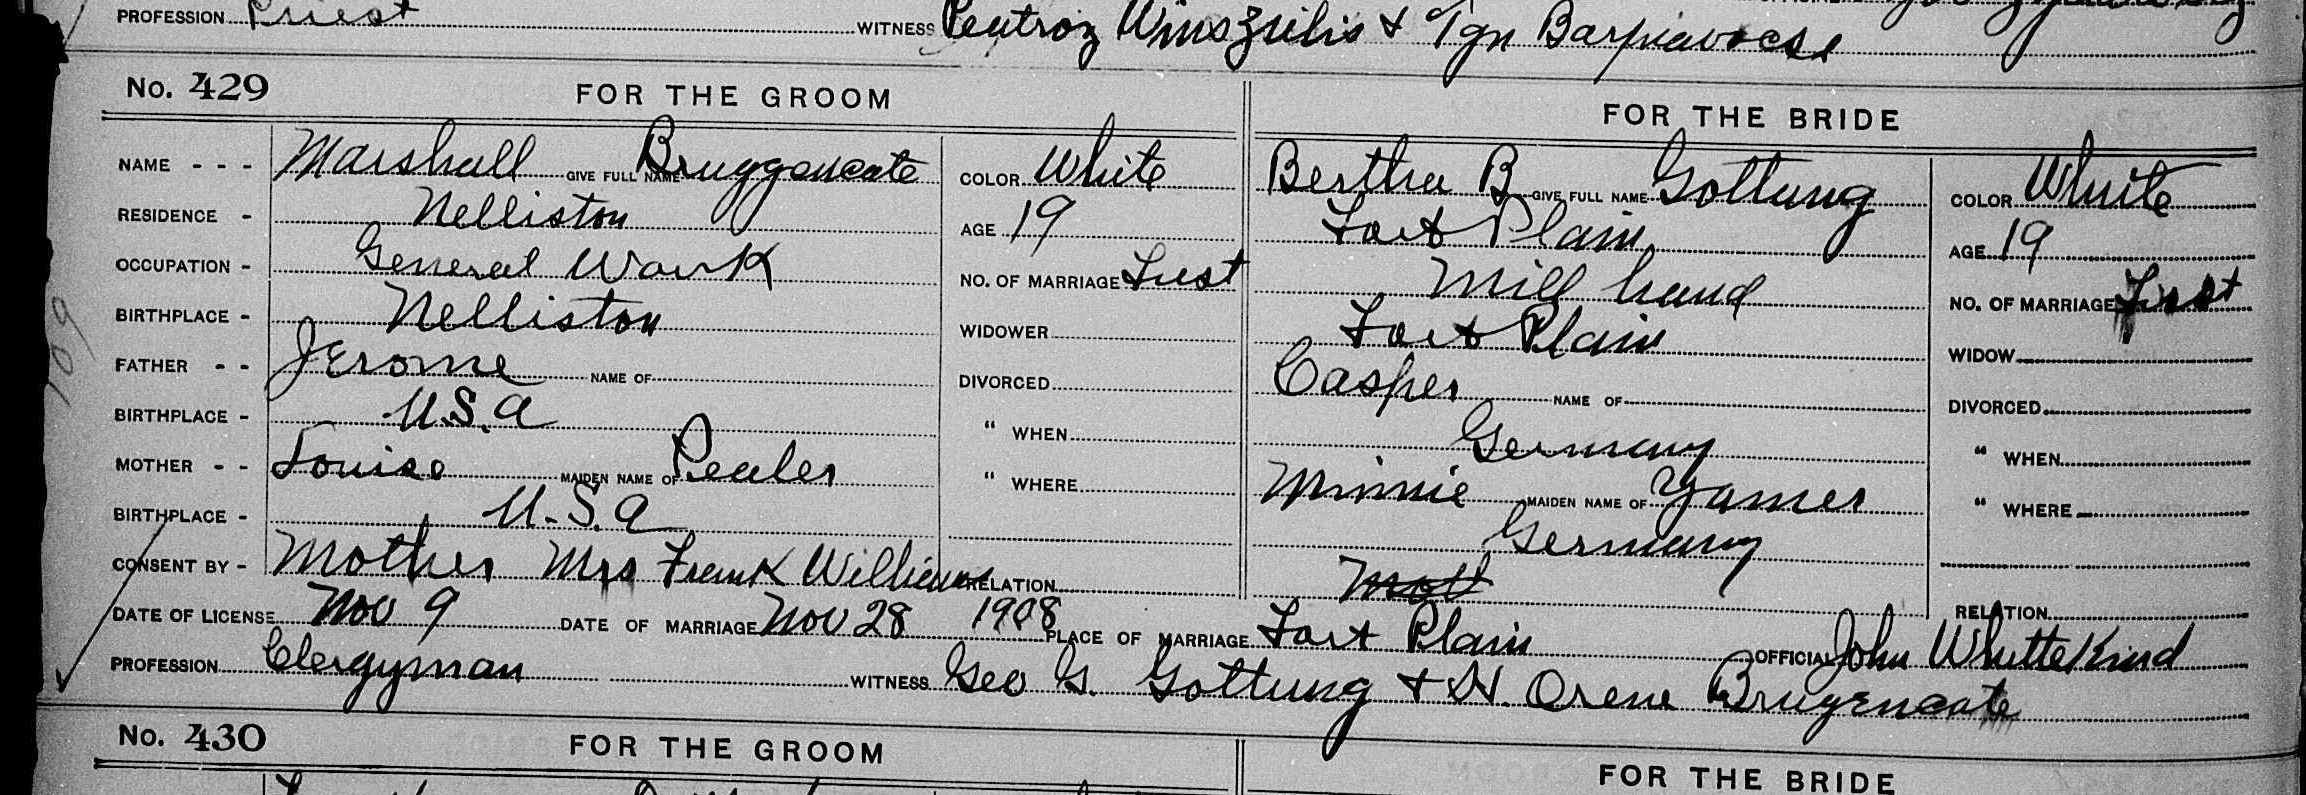 PROFESSION Priest WITNESS
No. 429 FOR THE GROOM FOR THE BRIDE
NAME - - - Marshall GIVE FULL NAME Bruggencate COLOR White Bertha B GIVE FULL NAME Gottung COLOR White
RESIDENCE - Nelliston AGE 19 Fort Plain AGE 19
OCCUPATION - General Work NO. OF MARRIAGE First Mill hand NO. OF MARRIAGE First
BIRTHPLACE - Nelliston WIDOWER Fort Plain WIDOW
FATHER - - Jerome NAME OF DIVORCED Casper NAME OF DIVORCED
BIRTHPLACE - U.S.A " WHEN Germany " WHEN
MOTHER - - Louise MAIDEN NAME OF Pealer " WHERE Minnie MAIDEN NAME OF Yamer " WHERE
BIRTHPLACE - U.S.A Germany
CONSENT BY - Mother Mrs Frank Williams RELATION Moth RELATION
DATE OF LICENSE Nov 9 DATE OF MARRIAGE Nov 28 1908 PLACE OF MARRIAGE Fort Plain OFFICIAL John Whittekind
PROFESSION Clergyman WITNESS Geo G. Gottung + H. Orene Brugencate
No. 430 FOR THE GROOM FOR THE BRIDE